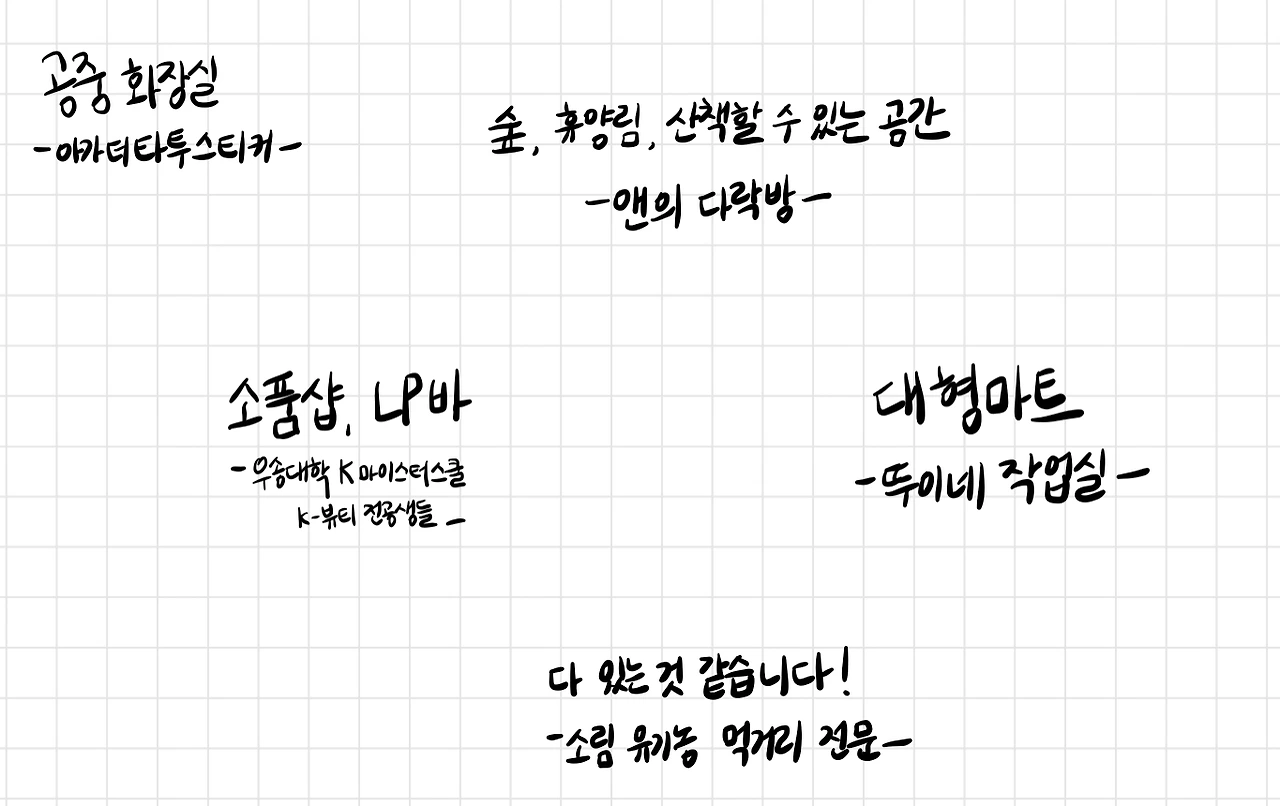 공중 화장실
-아카더타투스티커-
숲, 휴양림, 산책할 수 있는 공간
-앤의 다락방-
소품샵, LP바
-우송대학 K마이스터스쿨
K-뷰티 전공생들-
대형마트
-뚜이네 작업실-
다 있는것 같습니다!
-소림 유기농 먹거리 전문-